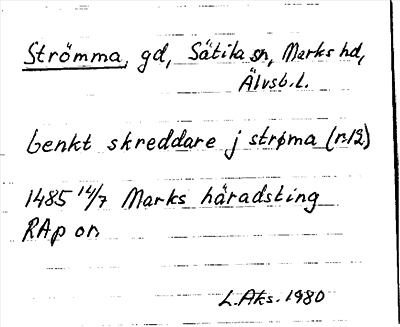 Strömma, gd, Sätila sn, Marks hd,
Älvsb. l.
benkt skreddare j strøma (r.12)
1485 14/7 Marks häradsting
RAp or.
L. Aks. 1980